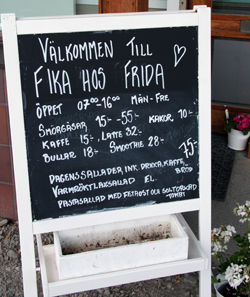 VÄLKOMMEN TILL
FIKA HOS FRIDA
ÖPPET 07⁰⁰-16⁰⁰ MÅN-FRE
SMÖRGÅSAR 15:- -55:- KAKOR 10:-
KAFFE 15:- LATTE 32:-
BULLAR 18:- SMOOTHIE 28:-
DAGENS SALLADER INK. DRICKA, KAFFE, BRÖD 75:-
VARMRÖKTLAXSALLAD EL.
PASTASALLAD MED FETAOST OCH SOLTORKAD TOMAT